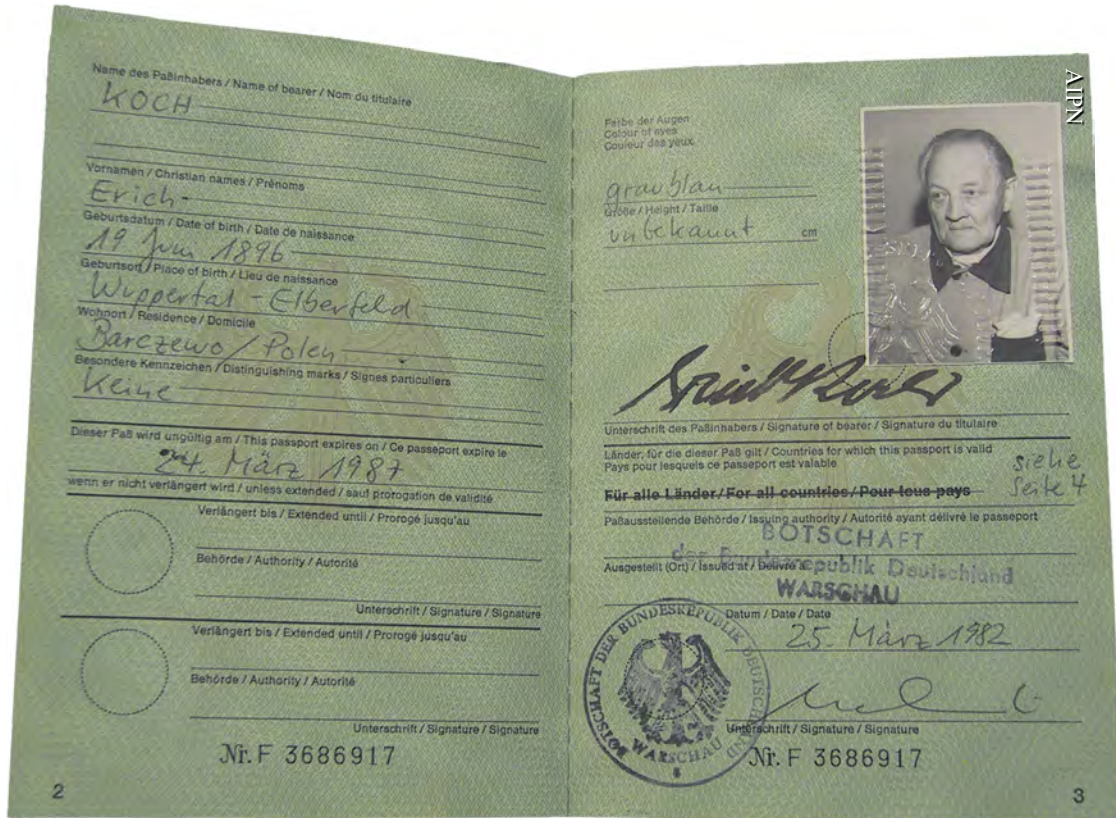 Name des Paßinhabers / Name of bearer / Nom du titulaire
KOCH
Vornamen / Christian names / Prénoms
Erich
Geburtsdatum / Date of birth / Date de naissance
19 Juni 1896
Geburtsort / Place of birth / Lieu de naissance
Wuppertal - Elberfeld
Wohnort / Residence / Domicile
Barczewo / Polen
Besondere Kennzeichen / Distinguishing marks / Signes particuliers
Keine
Dieser Paß wird ungültig am / This passport expires on / Ce passeport expire le
24. März 1987
wenn er nicht verlängert wird / unless extended / sauf prorogation de validité
Verlängert bis / Extended until / Prorogé jusqu'au
Behörde / Authority / Autorité
Unterschrift / Signature / Signature
Verlängert bis / Extended until / Prorogé jusqu'au
Behörde / Authority / Autorité
Unterschrift / Signature / Signature
Nr. F 3686917
2
AIPN
Farbe der Augen
Colour of eyes
Couleur des yeux
graublau
Größe / Height / Taille
unbekannt cm
Unterschrift des Paßinhabers / Signature of bearer / Signature du titulaire
Länder, für die dieser Paß gilt / Countries for which this passport is valid
Pays pour lesquels ce passeport est valable
siehe
Seite 4
Für alle Länder / For all countries / Pour tous pays
Paßausstellende Behörde / Issuing authority / Autorité ayant délivré le passeport
BOTSCHAFT
der Bundesrepublik Deutschland
Ausgestellt (Ort) / Issued at / Délivré à
WARSCHAU
Datum / Date / Date
25. März 1982
BOTSCHAFT DER BUNDESREPUBLIK DEUTSCHLAND
WARSCHAU
Unterschrift / Signature / Signature
Nr. F 3686917
3